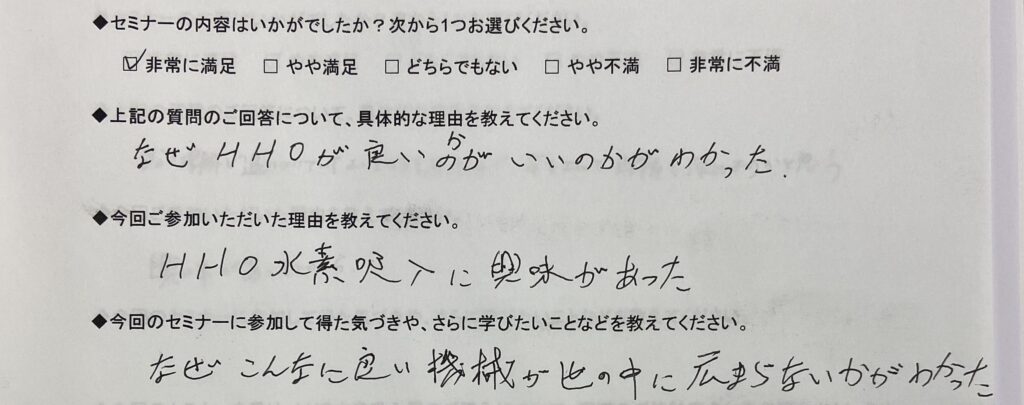 ◆セミナーの内容はいかがでしたか？次から1つお選びください。
☑ 非常に満足 □ やや満足 □ どちらでもない □ やや不満 □ 非常に不満
◆上記の質問のご回答について、具体的な理由を教えてください。
なぜHHOが良いのかが いいのかがわかった.
◆今回ご参加いただいた理由を教えてください。
HHO水素吸入に興味があった
◆今回のセミナーに参加して得た気づきや、さらに学びたいことなどを教えてください。
なぜこんなに良い機械が世の中に広まらないかがわかった